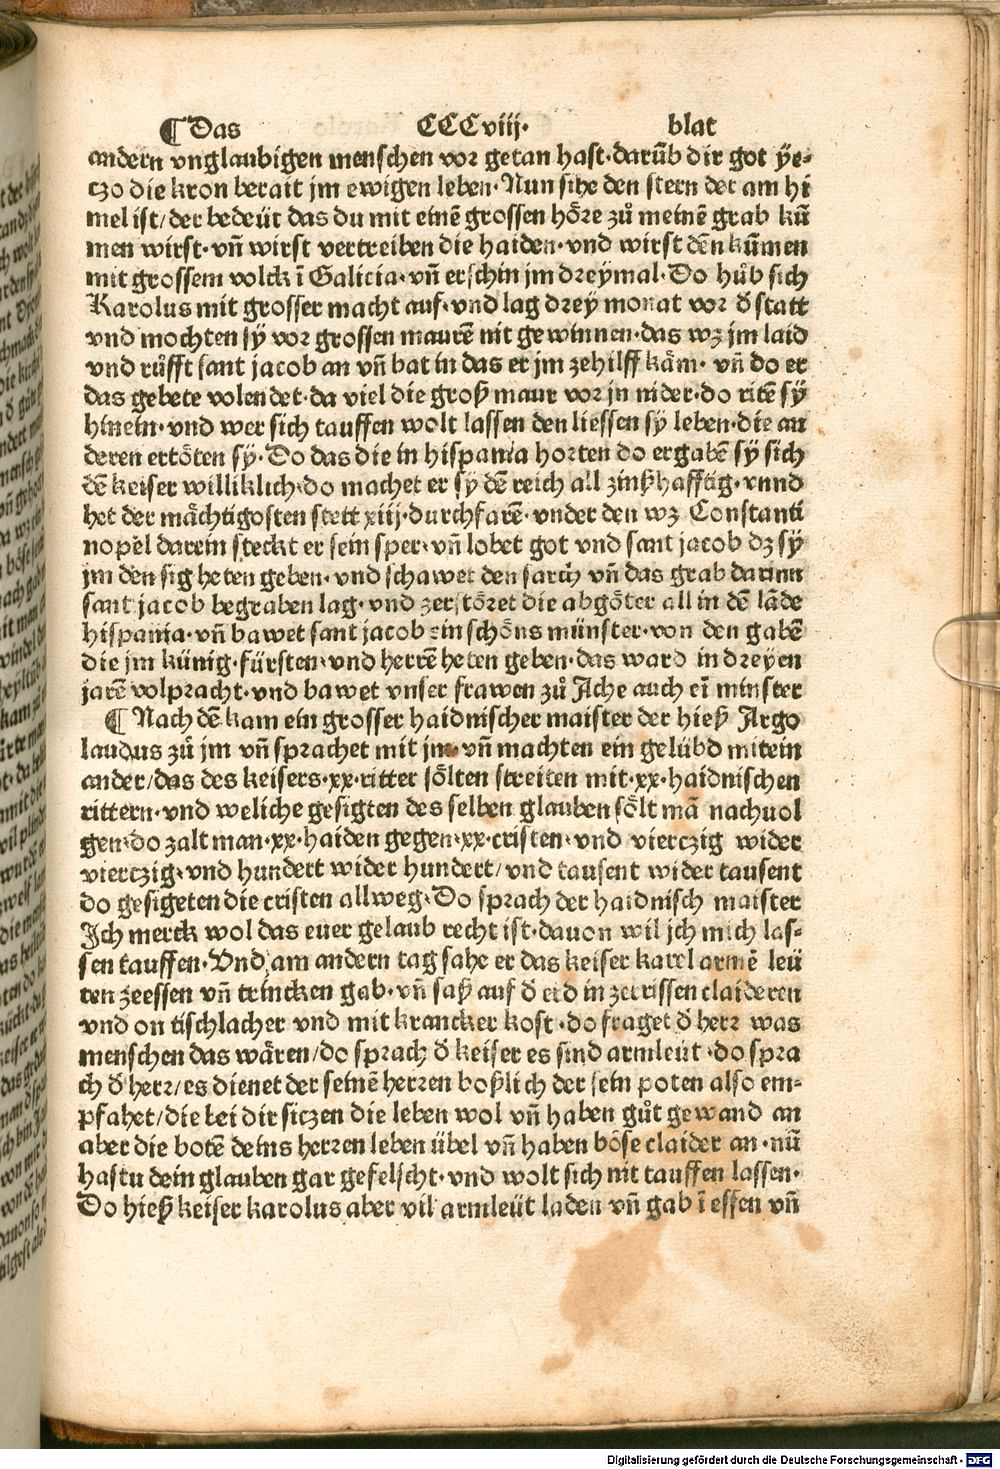 ¶ Das CCCviij· blat
andern vnglaubigen menschen vor getan hast·darūb dir got ÿe⸗
czo die kron berait jm ewigen leben·Nun sihe den stern der am hi
mel ist/der bedeüt das du mit einē grossen höre zů meinē grab kū
men wirst·vñ wirst vertreiben die haiden·vnd wirst dēn kūmen
mit grossem volck ī Galicia·vñ erschin jm dreymal·Do hůb sich
Karolus mit grosser macht auf·vnd lag drey monat vor ď statt
vnd mochten sÿ vor grossen maurē nit gewinnen·das wz jm laid
vnd růfft sant jacob an vñ bat in das er jm zehilff käm· vñ do er
das gebete volendet·da viel die groß maur vor jn nider·do ritē sÿ
hinein·vnd wer sich tauffen wolt lassen den liessen sÿ leben·die an
deren ertöten sÿ·Do das die in hispania horten do ergabē sÿ sich
dē keiser williklich·do machet er sÿ dē reich all zinßhafftig·vnnd
het der mächtigosten stett xiij·durchfarē·vnder den wz Constanti
nopel darein steckt er sein sper·vñ lobet got vnd sant jacob dz sÿ
jm den sig heten geben·vnd schawet den sarch vñ das grab darinn
sant jacob begraben lag·vnd zerstöret die abgöter all in dē lāde
hispania·vñ bawet sant jacob ein schöns münster·von den gabē
die jm künig·fürsten·vnd herrē heten geben·das ward in dreyen
jarē volpracht·vnd bawet vnser frawen zů Ache auch eī minster
¶ Nach dē kam ein grosser haidnischer maister der hieß Argo
laudus zů jm vñ sprachet mit jm·vñ machten ein gelübd mitein
ander/das des keisers·xx·ritter sölten streiten mit·xx·haidnischen
rittern·vnd weliche gesigten des selben glauben sölt mā nachuol
gen·do zalt man·xx·haiden gegen·xx·cristen·vnd vierczig wider
vierczig·vnd hundert wider hundert/vnd tausent wider tausent
do gesigeten die cristen allweg·Do sprach der haidnisch maister
Ich merck wol das euer gelaub recht ist·dauon wil jch mich las⸗
sen tauffen·Vnd am andern tag sahe er das keiser karel armē leü
ten zeessen vñ trincken gab·vñ saß auf ď erd in zerrissen claideren
vnd on tischlacher vnd mit krancker kost·do fraget ď herr was
menschen das wären/do sprach ď keiser es sind armleüt·do spra
ch ď herr/es dienet der seinē herren boßlich der sein poten also em⸗
pfahet/die bei dir siczen die leben wol vñ haben gůt gewand an
aber die botē deins herren leben übel vñ haben böse claider an·nū
hastu dein glauben gar gefelscht·vnd wolt sich nit tauffen lassen·
Do hieß keiser karolus aber vil armleüt laden vñ gab ī essen vñ
Digitalisierung gefördert durch die Deutsche Forschungsgemeinschaft - DFG